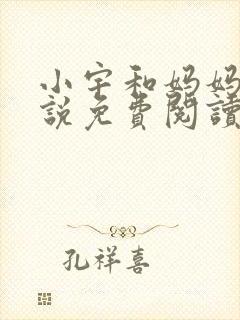 小宇和妈妈
說免費閱讀
孔祥喜